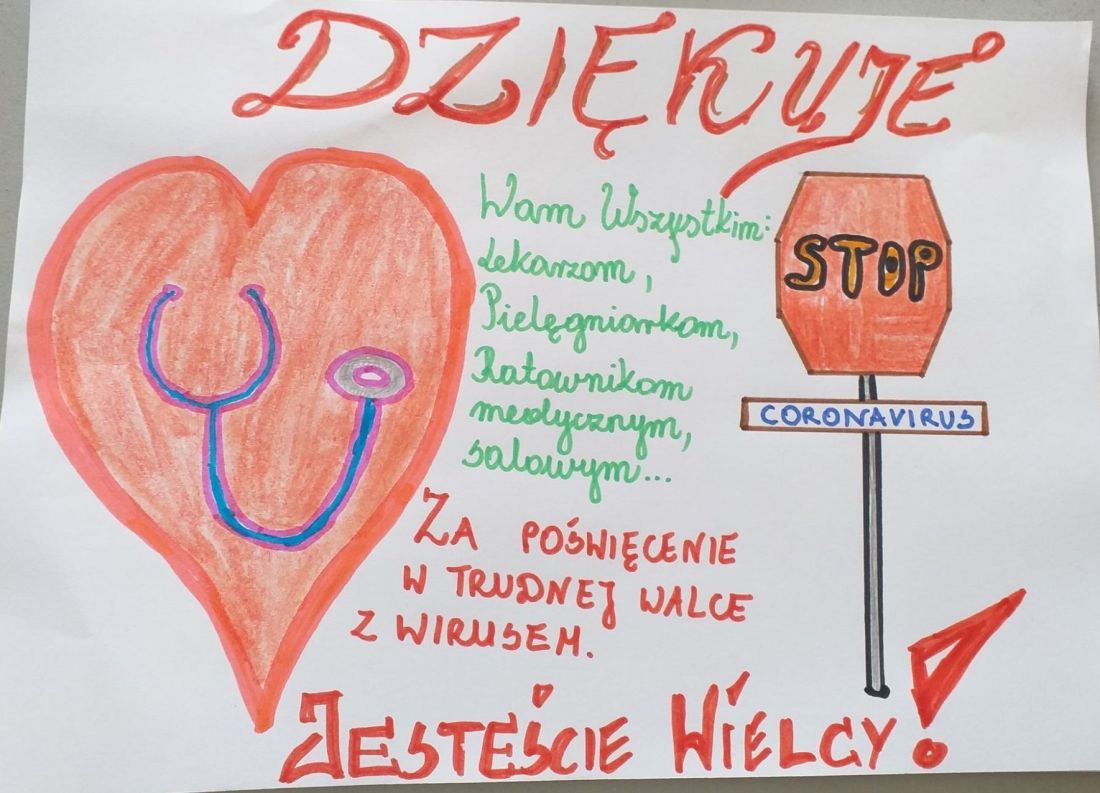 DZIĘKUJĘ
Wam Wszystkim:
Lekarzom,
Pielęgniarkom,
Ratownikom
medycznym,
salowym...
ZA POŚWIĘCENIE
W TRUDNEJ WALCE
Z WIRUSEM.
JESTEŚCIE WIELCY!
STOP
CORONAVIRUS